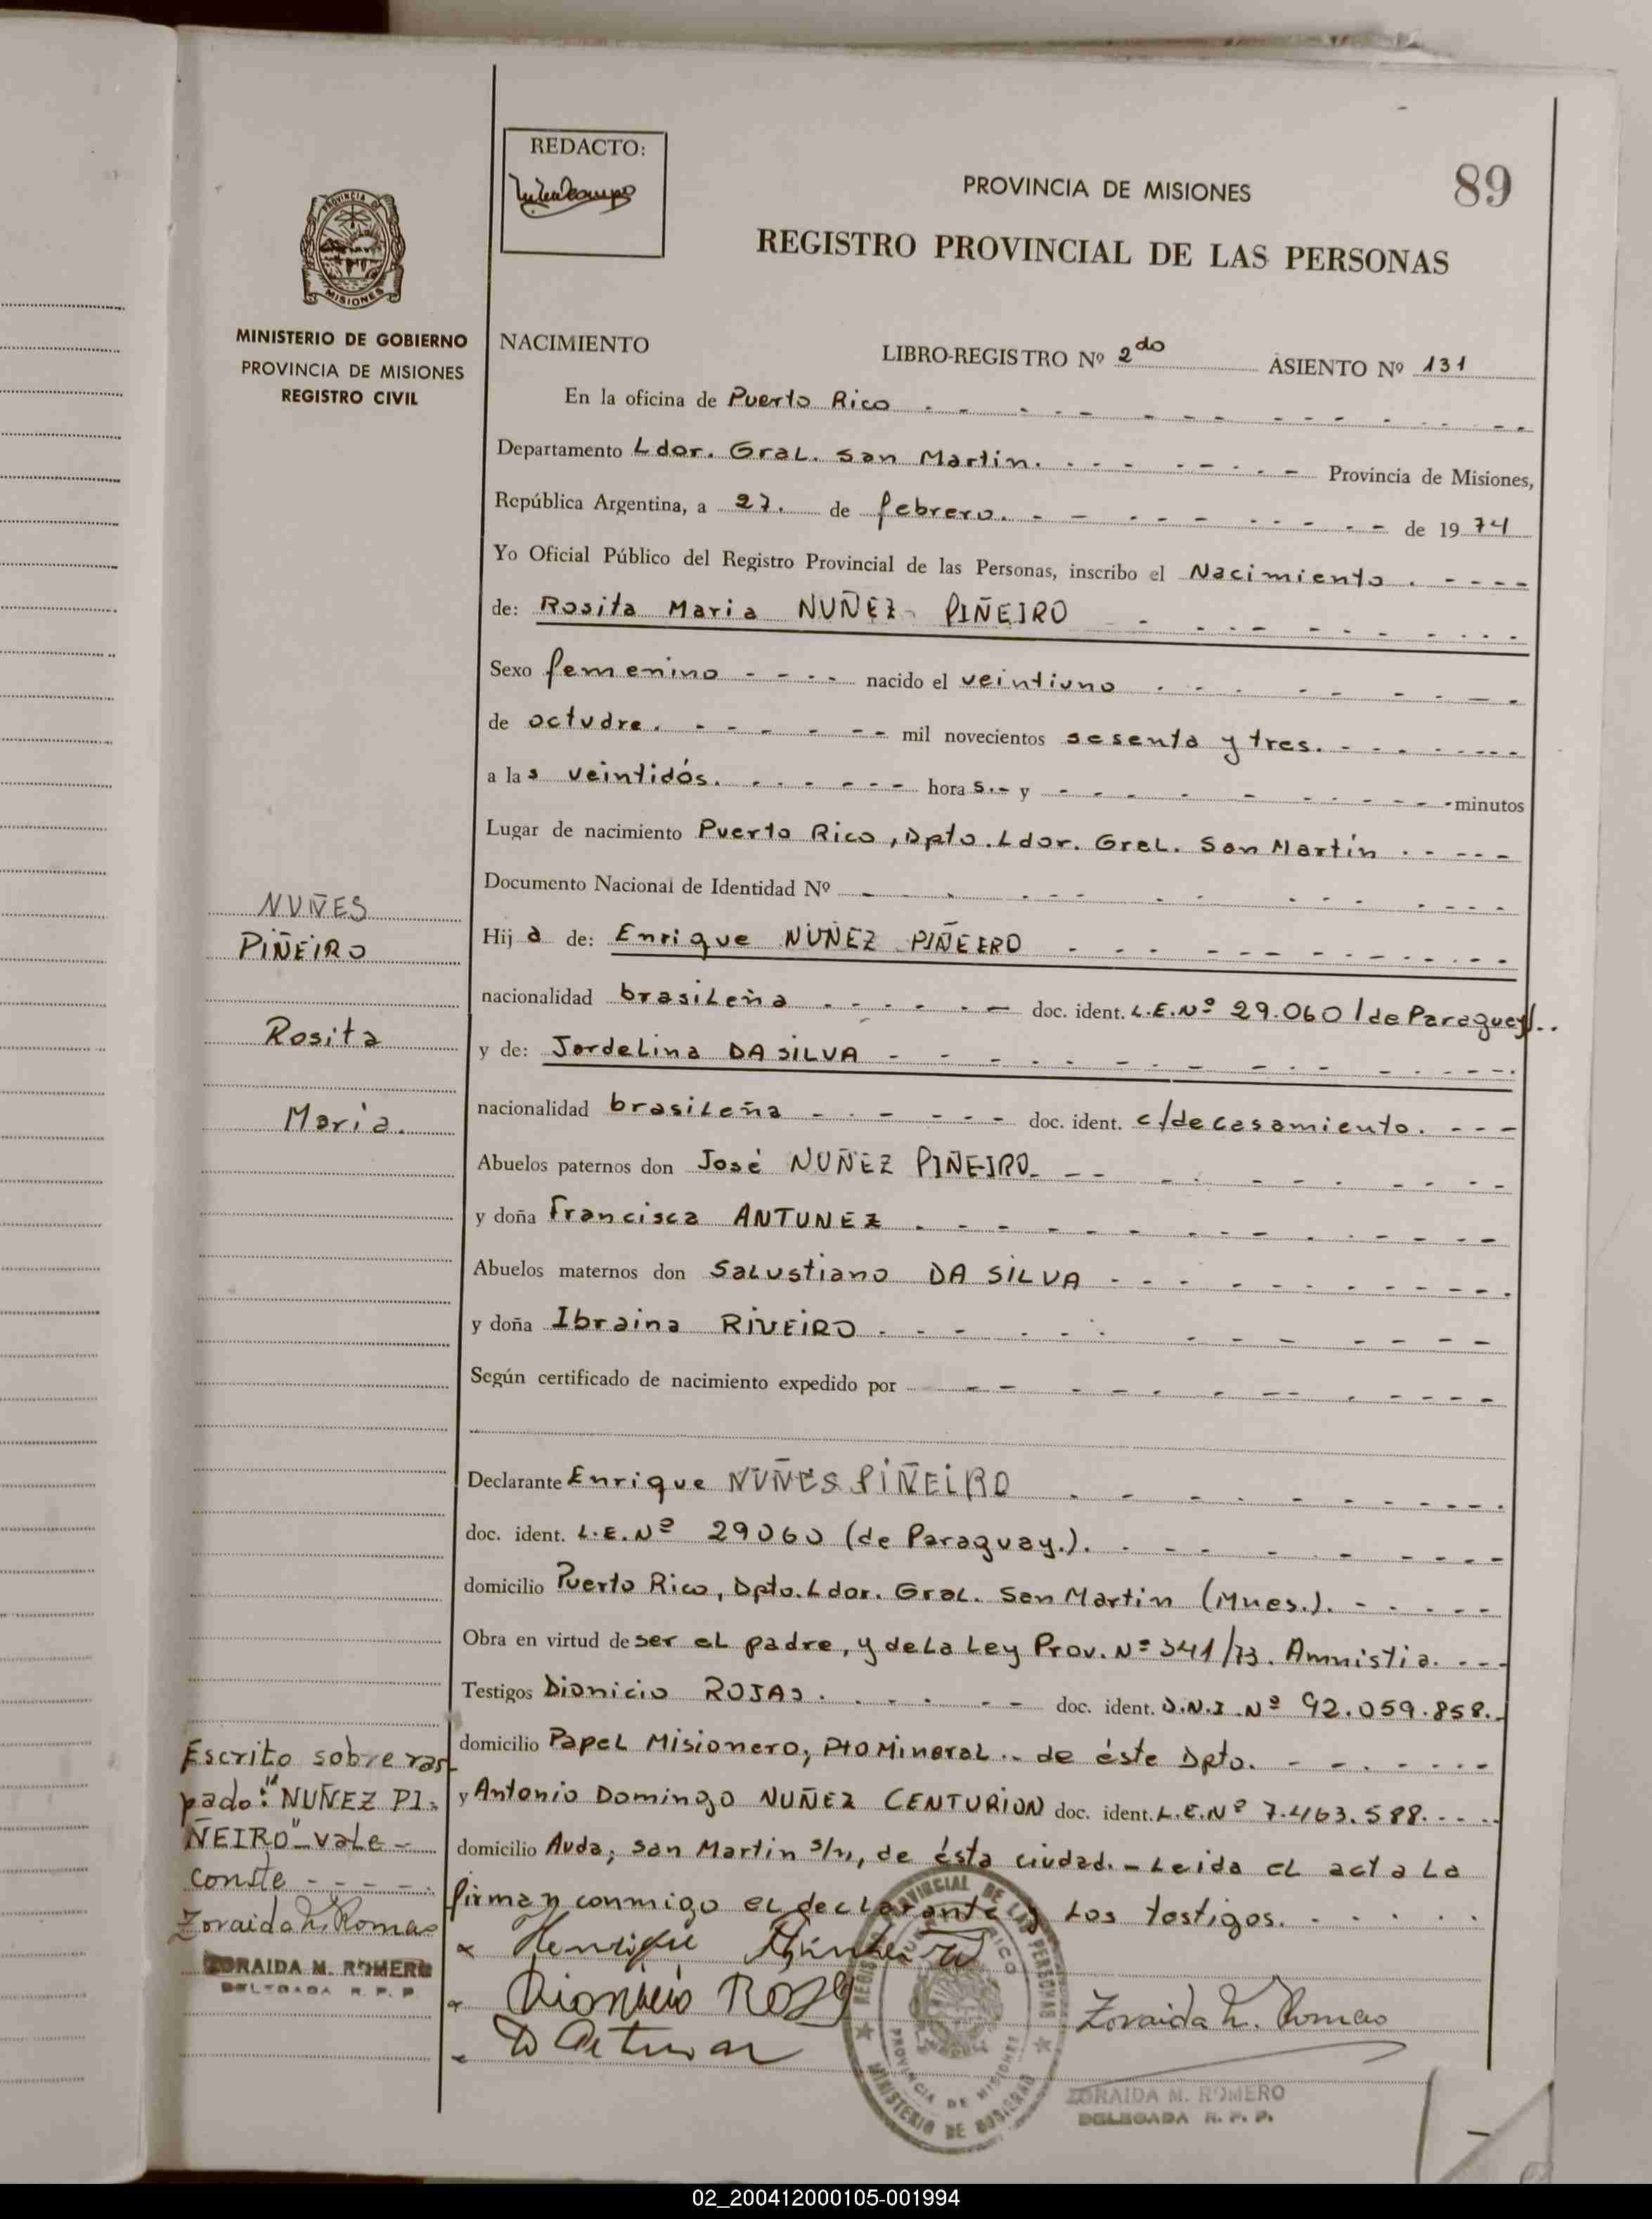 REDACTO:
PROVINCIA DE MISIONES
89
REGISTRO PROVINCIAL DE LAS PERSONAS
PROVINCIA DE
MISIONES
MINISTERIO DE GOBIERNO
PROVINCIA DE MISIONES
REGISTRO CIVIL
NACIMIENTO LIBRO-REGISTRO Nº 2do ASIENTO Nº 131
En la oficina de Puerto Rico
Departamento Ldor. Gral. San Martin. Provincia de Misiones,
República Argentina, a 27. de febrero. de 1974
Yo Oficial Público del Registro Provincial de las Personas, inscribo el Nacimiento.
de: Rosita Maria NUÑEZ PIÑEIRO
Sexo femenino nacido el veintiuno
de octudre. mil novecientos sesenta y tres.
a las veintidós. horas.- y minutos
Lugar de nacimiento Puerto Rico, Dpto. Ldor. Gral. San Martín
Documento Nacional de Identidad Nº
Hija de: Enrique NUÑEZ PIÑEIRO
nacionalidad brasileña doc. ident. L.E.Nº 29.060 /de Paraguay/.
y de: Jordelina DA SILVA
nacionalidad brasileña doc. ident. c/de casamiento.
Abuelos paternos don José NUÑEZ PIÑEIRO
y doña Francisca ANTUNEZ
Abuelos maternos don Salustiano DA SILVA
y doña Ibraina RIVEIRO
Según certificado de nacimiento expedido por
Declarante Enrique NUÑES PIÑEIRO
doc. ident. L.E.Nº 29060 (de Paraguay.).
domicilio Puerto Rico, Dpto. Ldor. Gral. San Martin (Mnes.).
Obra en virtud de ser el padre, y de la Ley Prov. Nº 341/73. Amnistia.
Testigos Dionicio ROJAS. doc. ident. D.N.I. Nº 92.059.858.
domicilio Papel Misionero, Pto Mineral.. de éste Dpto.
y Antonio Domingo NUÑEZ CENTURION doc. ident. L.E.Nº 7.463.588.
domicilio Avda, San Martin s/n, de ésta ciudad. - Leida el acta la
firman conmigo el declarante y los testigos.
NUÑES
PIÑEIRO
Rosita
Maria.
Escrito sobre ras-
pado: "NUÑEZ PI-
ÑEIRO" vale
conste
Zoraida M. Romero
ZORAIDA M. ROMERO
DELEGADA R. P. P.
Henrique
Dionicio
Zoraida M. Romero
REGISTRO PROVINCIAL DE LAS PERSONAS
PUERTO RICO
PROVINCIA DE MISIONES
MINISTERIO DE GOBIERNO
ZORAIDA M. ROMERO
DELEGADA R. P. P.
02_200412000105-001994